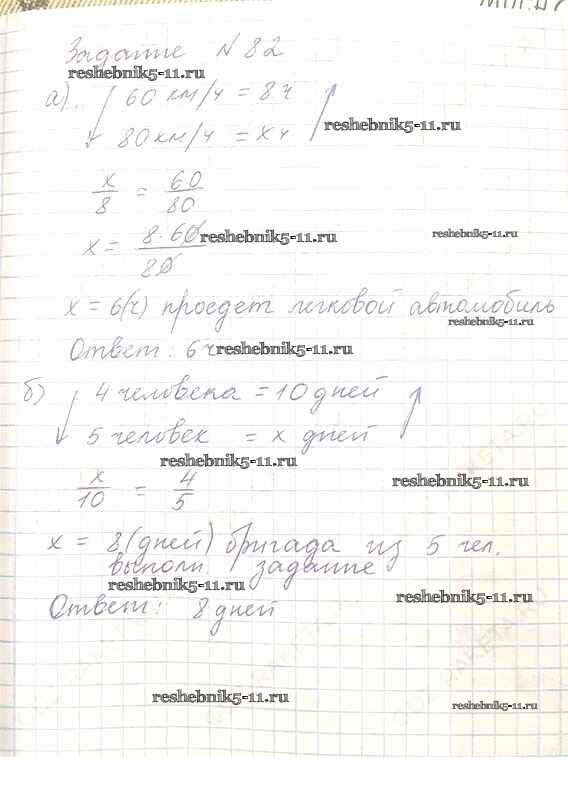 Задание N 82
reshebnik5-11.ru
а). 60 км/ч = 8 ч
reshebnik5-11.ru
80 км/ч = х ч
х/8 = 60/80
х = 8·60/80
reshebnik5-11.ru
reshebnik5-11.ru
х = 6(ч) проедет легковой автомобиль
reshebnik5-11.ru
Ответ: 6ч
reshebnik5-11.ru
б) 4 человека = 10 дней
5 человек = х дней
reshebnik5-11.ru
х/10 = 4/5
reshebnik5-11.ru
х = 8(дней) бригада из 5 чел.
выполн. задание
reshebnik5-11.ru
reshebnik5-11.ru
Ответ: 8 дней
reshebnik5-11.ru
reshebnik5-11.ru